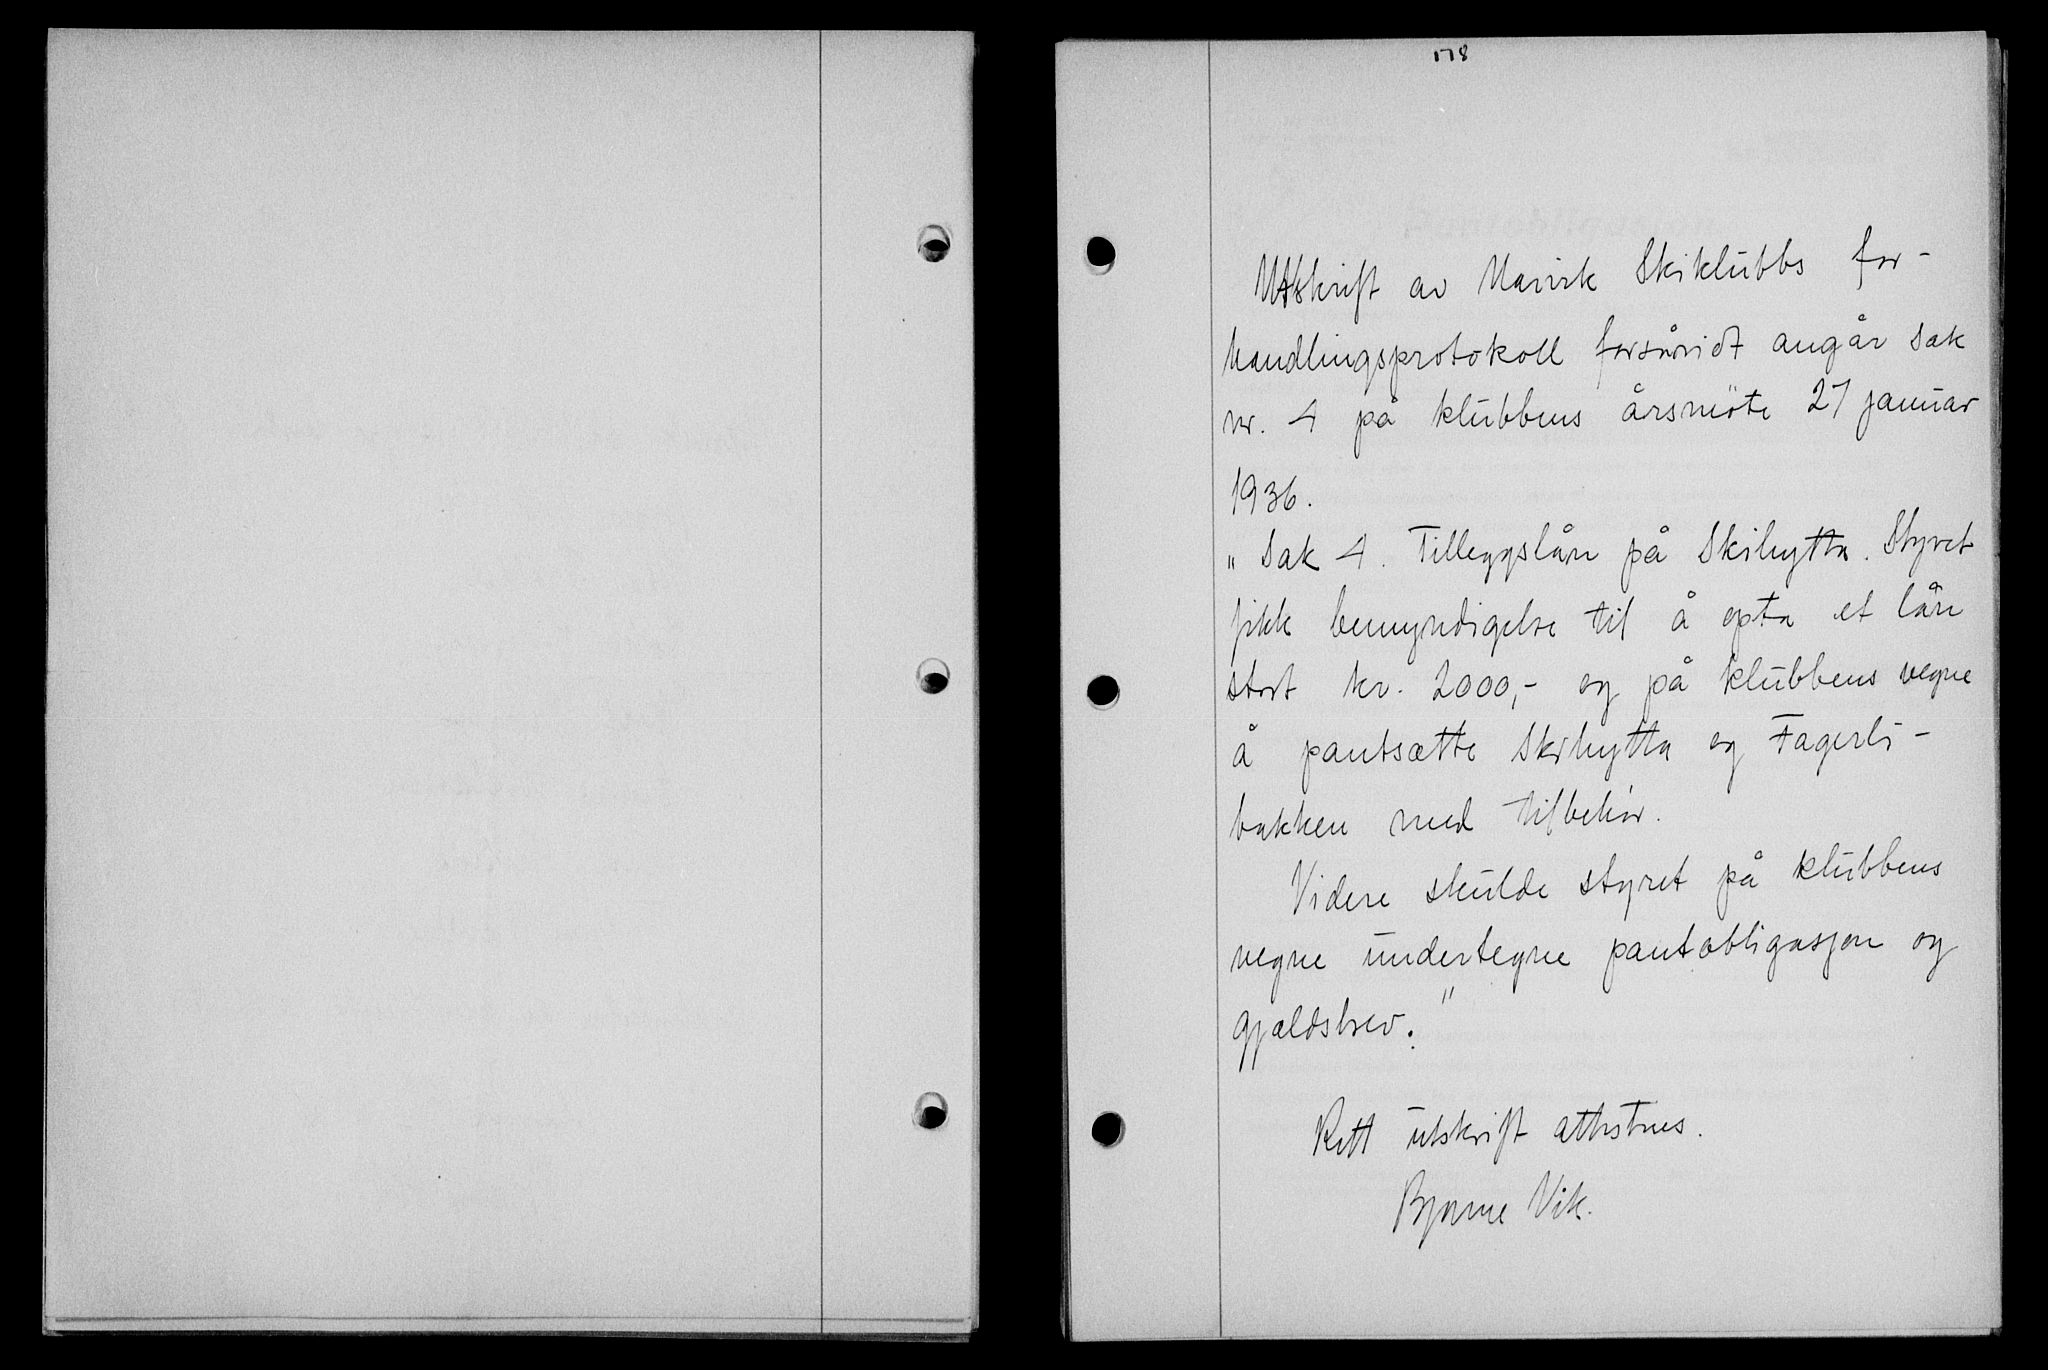 178
Utskrift av Narvik Skiklubbs for-
handlingsprotokoll forsåvidt angår sak
nr. 4 på klubbens årsmöte 27 januar
1936.
„ Sak 4. Tilleggslån på Skihytta. Styret
fikk bemyndigelse til å opta et lån
stort kr. 2000,- og på klubbens vegne
å pantsætte Skihytta og Fagerli-
bakken med tilbehør.
Videre skulde styret på klubbens
vegne undertegne pantobligasjon og
gjældsbrev."
Rett utskrift attesteres.
Bjarne Vik.